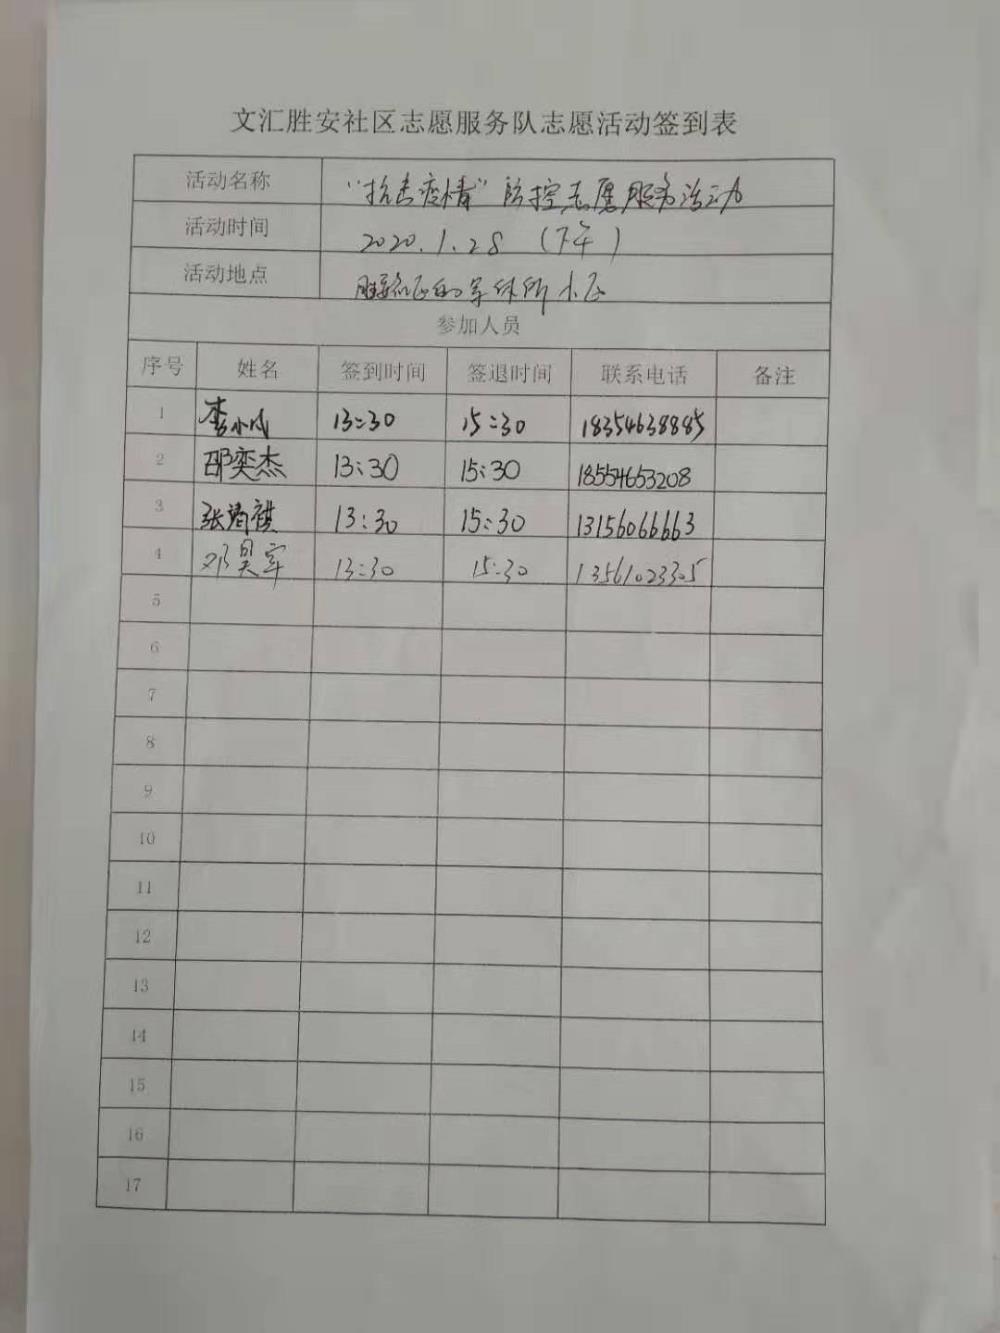 文汇胜安社区志愿服务队志愿活动签到表
活动名称 “抗击疫情”防控志愿服务活动
活动时间 2020.1.28 (下午)
活动地点 小区
参加人员
序号 姓名 签到时间 签退时间 联系电话 备注
1 李小 13:30 15:30 18354638885
2 邵奕杰 13:30 15:30 18554653208
3 张 祺 13:30 15:30 13156066663
4 邓昊 13:30 15:30 13561023305
5
6
7
8
9
10
11
12
13
14
15
16
17